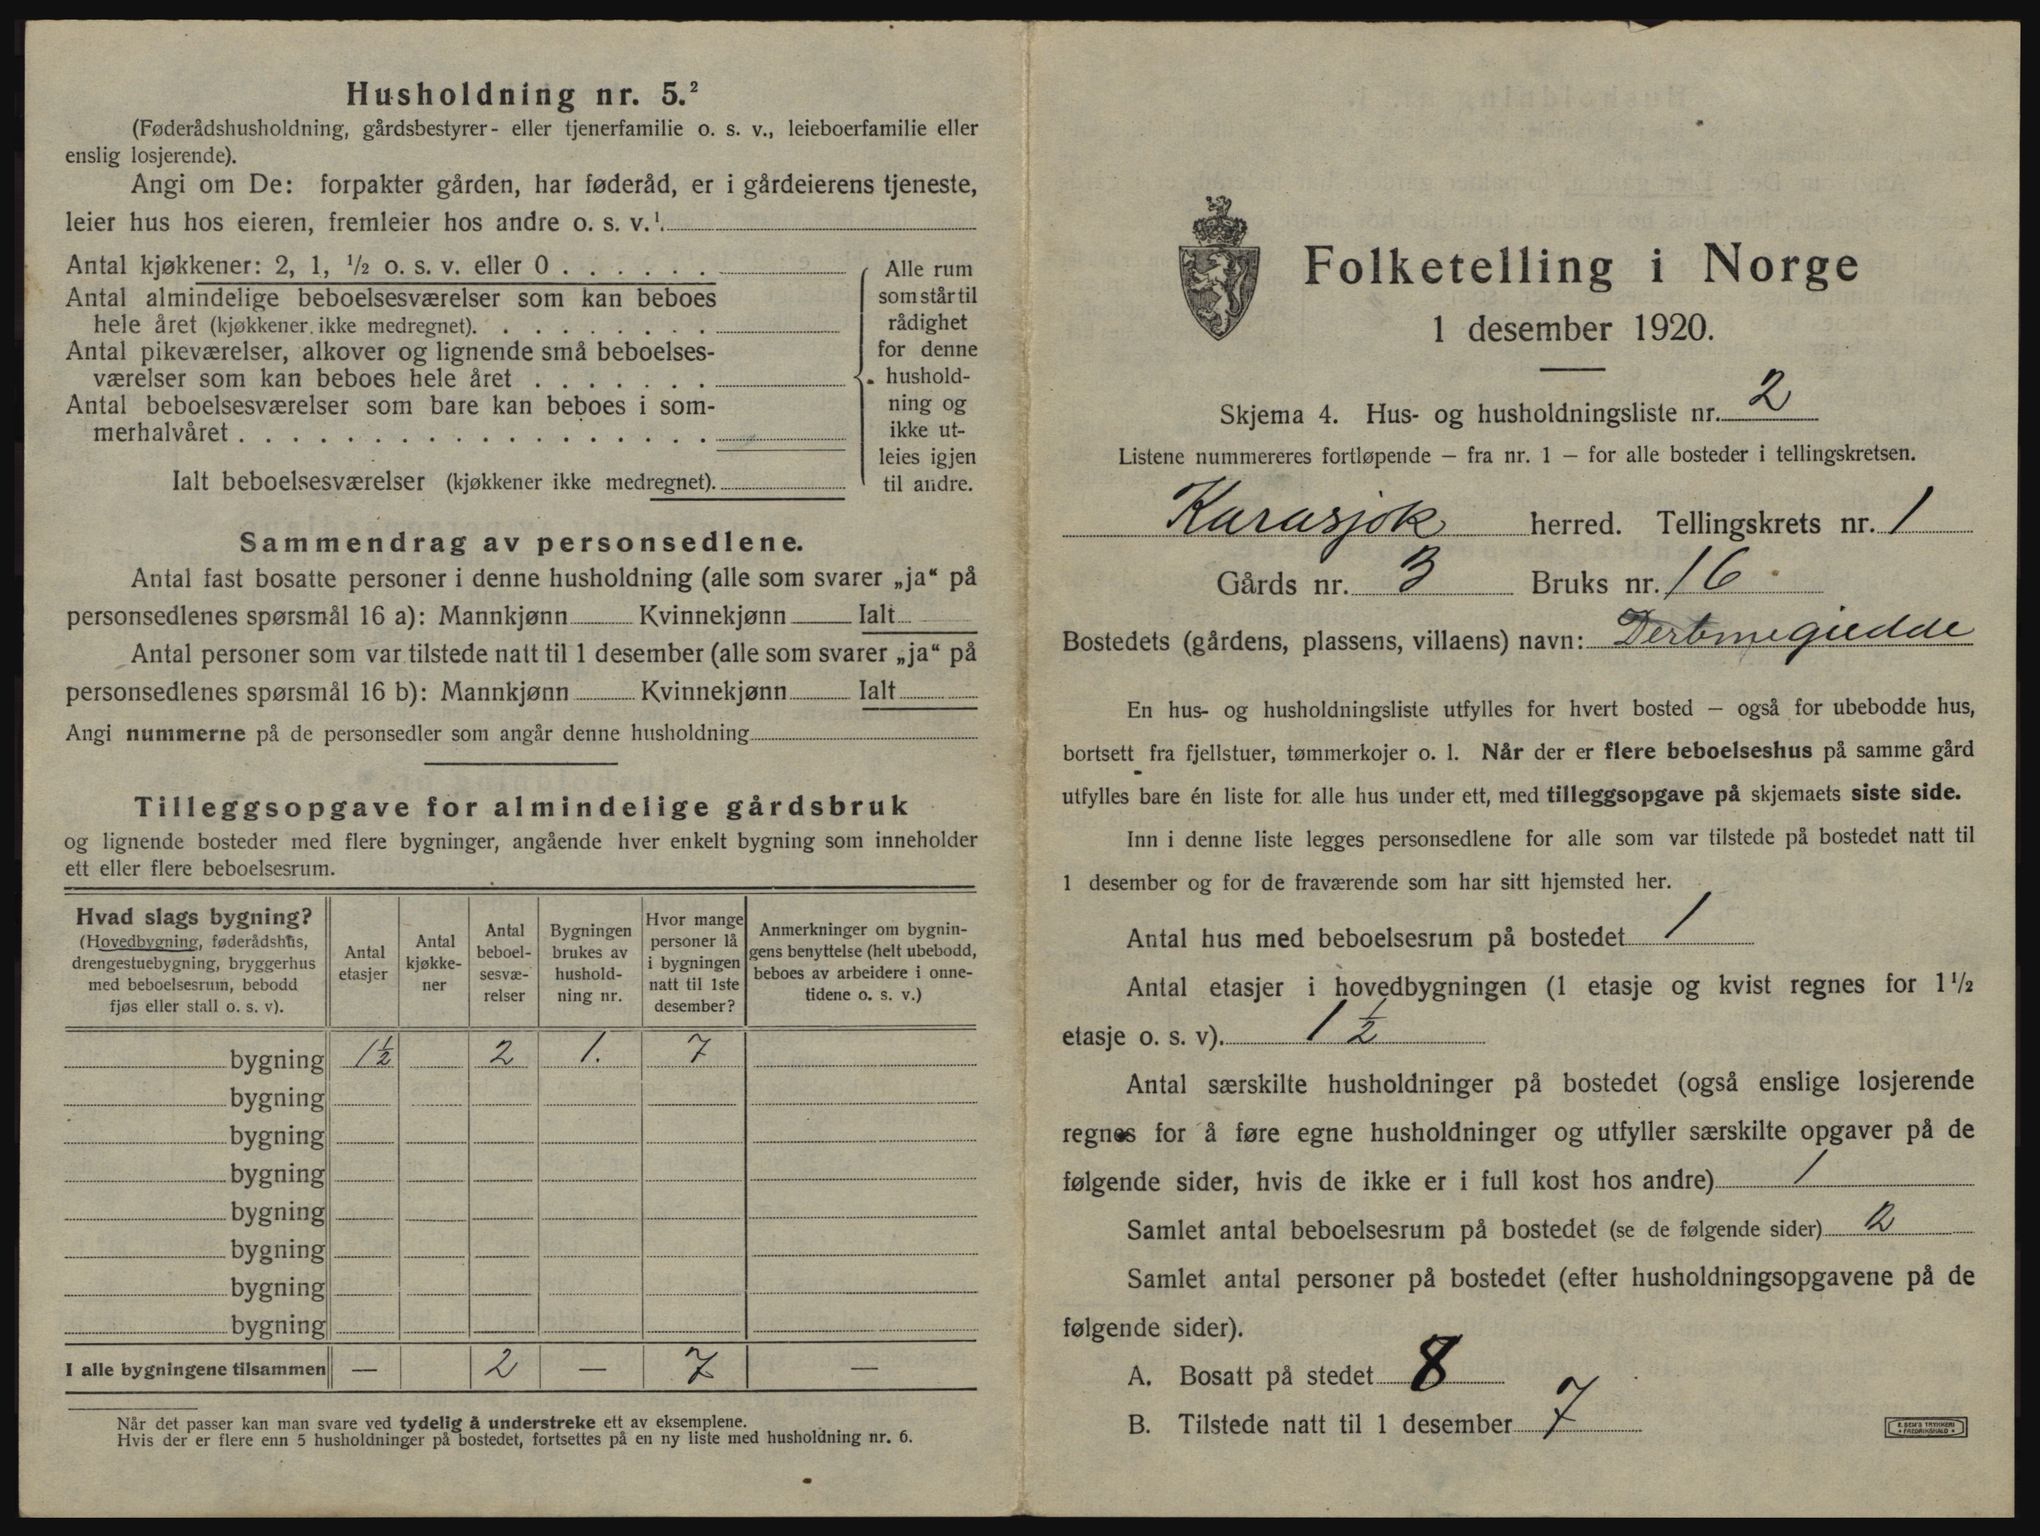 Husholdning nr. 5.²
(Føderådshusholdning, gårdsbestyrer- eller tjenerfamilie o. s. v., leieboerfamilie eller
enslig losjerende).
Angi om De: forpakter gården, har føderåd, er i gårdeierens tjeneste,
leier hus hos eieren, fremleier hos andre o. s. v.¹.
Antal kjøkkener: 2, 1, ½ o. s. v. eller 0 . . . . . .
Antal almindelige beboelsesværelser som kan beboes
hele året (kjøkkener ikke medregnet). . . . . . . . .
Antal pikeværelser, alkover og lignende små beboelses-
værelser som kan beboes hele året . . . . . . .
Antal beboelsesværelser som bare kan beboes i som-
merhalvåret . . . . . . . . . . . . . . . . . .
Ialt beboelsesværelser (kjøkkener ikke medregnet).
Alle rum
som står til
rådighet
for denne
hushold-
ning og
ikke ut-
leies igjen
til andre.
Sammendrag av personsedlene.
Antal fast bosatte personer i denne husholdning (alle som svarer „ja“ på
personsedlenes spørsmål 16 a): Mannkjønn Kvinnekjønn Ialt
Antal personer som var tilstede natt til 1 desember (alle som svarer „ja“ på
personsedlenes spørsmål 16 b): Mannkjønn Kvinnekjønn Ialt
Angi nummerne på de personsedler som angår denne husholdning
Tilleggsopgave for almindelige gårdsbruk
og lignende bosteder med flere bygninger, angående hver enkelt bygning som inneholder
ett eller flere beboelsesrum.
Hvad slags bygning?
(Hovedbygning, føderådshus,
drengestuebygning, bryggerhus
med beboelsesrum, bebodd
fjøs eller stall o. s. v).
Antal
etasjer
Antal
kjøkke-
ner
Antal
beboel-
sesvæ-
relser
Bygningen
brukes av
hushold-
ning nr.
Hvor mange
personer lå
i bygningen
natt til 1ste
desember?
Anmerkninger om bygnin-
gens benyttelse (helt ubebodd,
beboes av arbeidere i onne-
tidene o. s. v.)
bygning 1½ 2 1. 7
bygning
bygning
bygning
bygning
bygning
bygning
bygning
I alle bygningene tilsammen — 2 — 7 —
Når det passer kan man svare ved tydelig å understreke ett av eksemplene.
Hvis der er flere enn 5 husholdninger på bostedet, fortsettes på en ny liste med husholdning nr. 6.
Folketelling i Norge
1 desember 1920.
Skjema 4. Hus- og husholdningsliste nr. 2
Listene nummereres fortløpende – fra nr. 1 – for alle bosteder i tellingskretsen.
Karasjok herred. Tellingskrets nr. 1
Gårds nr. 3 Bruks nr. 16
Bostedets (gårdens, plassens, villaens) navn: Dertmegiedde
En hus- og husholdningsliste utfylles for hvert bosted – også for ubebodde hus,
bortsett fra fjellstuer, tømmerkojer o. l. Når der er flere beboelseshus på samme gård
utfylles bare én liste for alle hus under ett, med tilleggsopgave på skjemaets siste side.
Inn i denne liste legges personsedlene for alle som var tilstede på bostedet natt til
1 desember og for de fraværende som har sitt hjemsted her.
Antal hus med beboelsesrum på bostedet 1
Antal etasjer i hovedbygningen (1 etasje og kvist regnes for 1½
etasje o. s. v). 1½
Antal særskilte husholdninger på bostedet (også enslige losjerende
regnes for å føre egne husholdninger og utfyller særskilte opgaver på de
følgende sider, hvis de ikke er i full kost hos andre) 1
Samlet antal beboelsesrum på bostedet (se de følgende sider) 2
Samlet antal personer på bostedet (efter husholdningsopgavene på de
følgende sider).
A. Bosatt på stedet 8
B. Tilstede natt til 1 desember 7
E. SEM'S TRYKKERI
FREDRIKSHALD